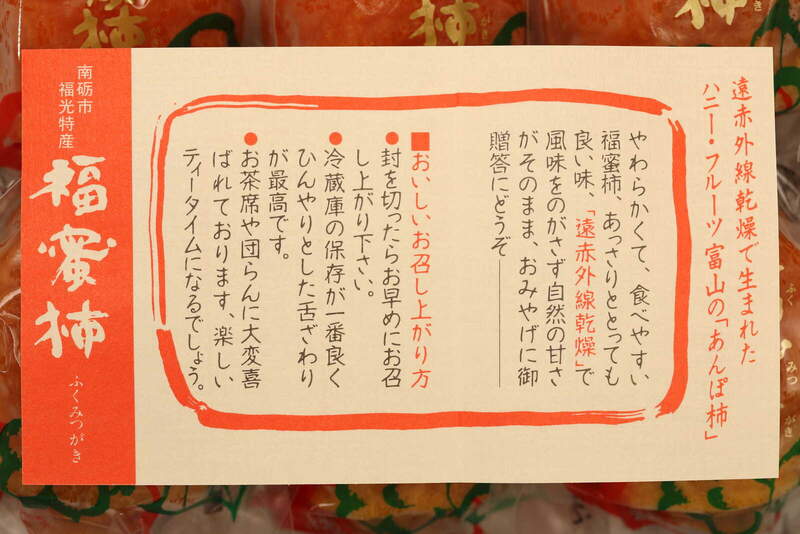 遠赤外線乾燥で生まれた
ハニー・フルーツ富山の「あんぽ柿」
やわらかくて、食べやすい
福蜜柿、あっさりととっても
良い味、「遠赤外線乾燥」で
風味をのがさず自然の甘さ
がそのまま、おみやげに御
贈答にどうぞ――
■おいしいお召し上がり方
●封を切ったらお早めにお召
し上がり下さい。
●冷蔵庫の保存が一番良く
ひんやりとした舌ざわり
が最高です。
●お茶席や団らんに大変喜
ばれております、楽しい
ティータイムになるでしょう。
南砺市
福光特産
福蜜柿
ふくみつがき
柿
がき
柿
がき
柿
ふく
みつ
がき